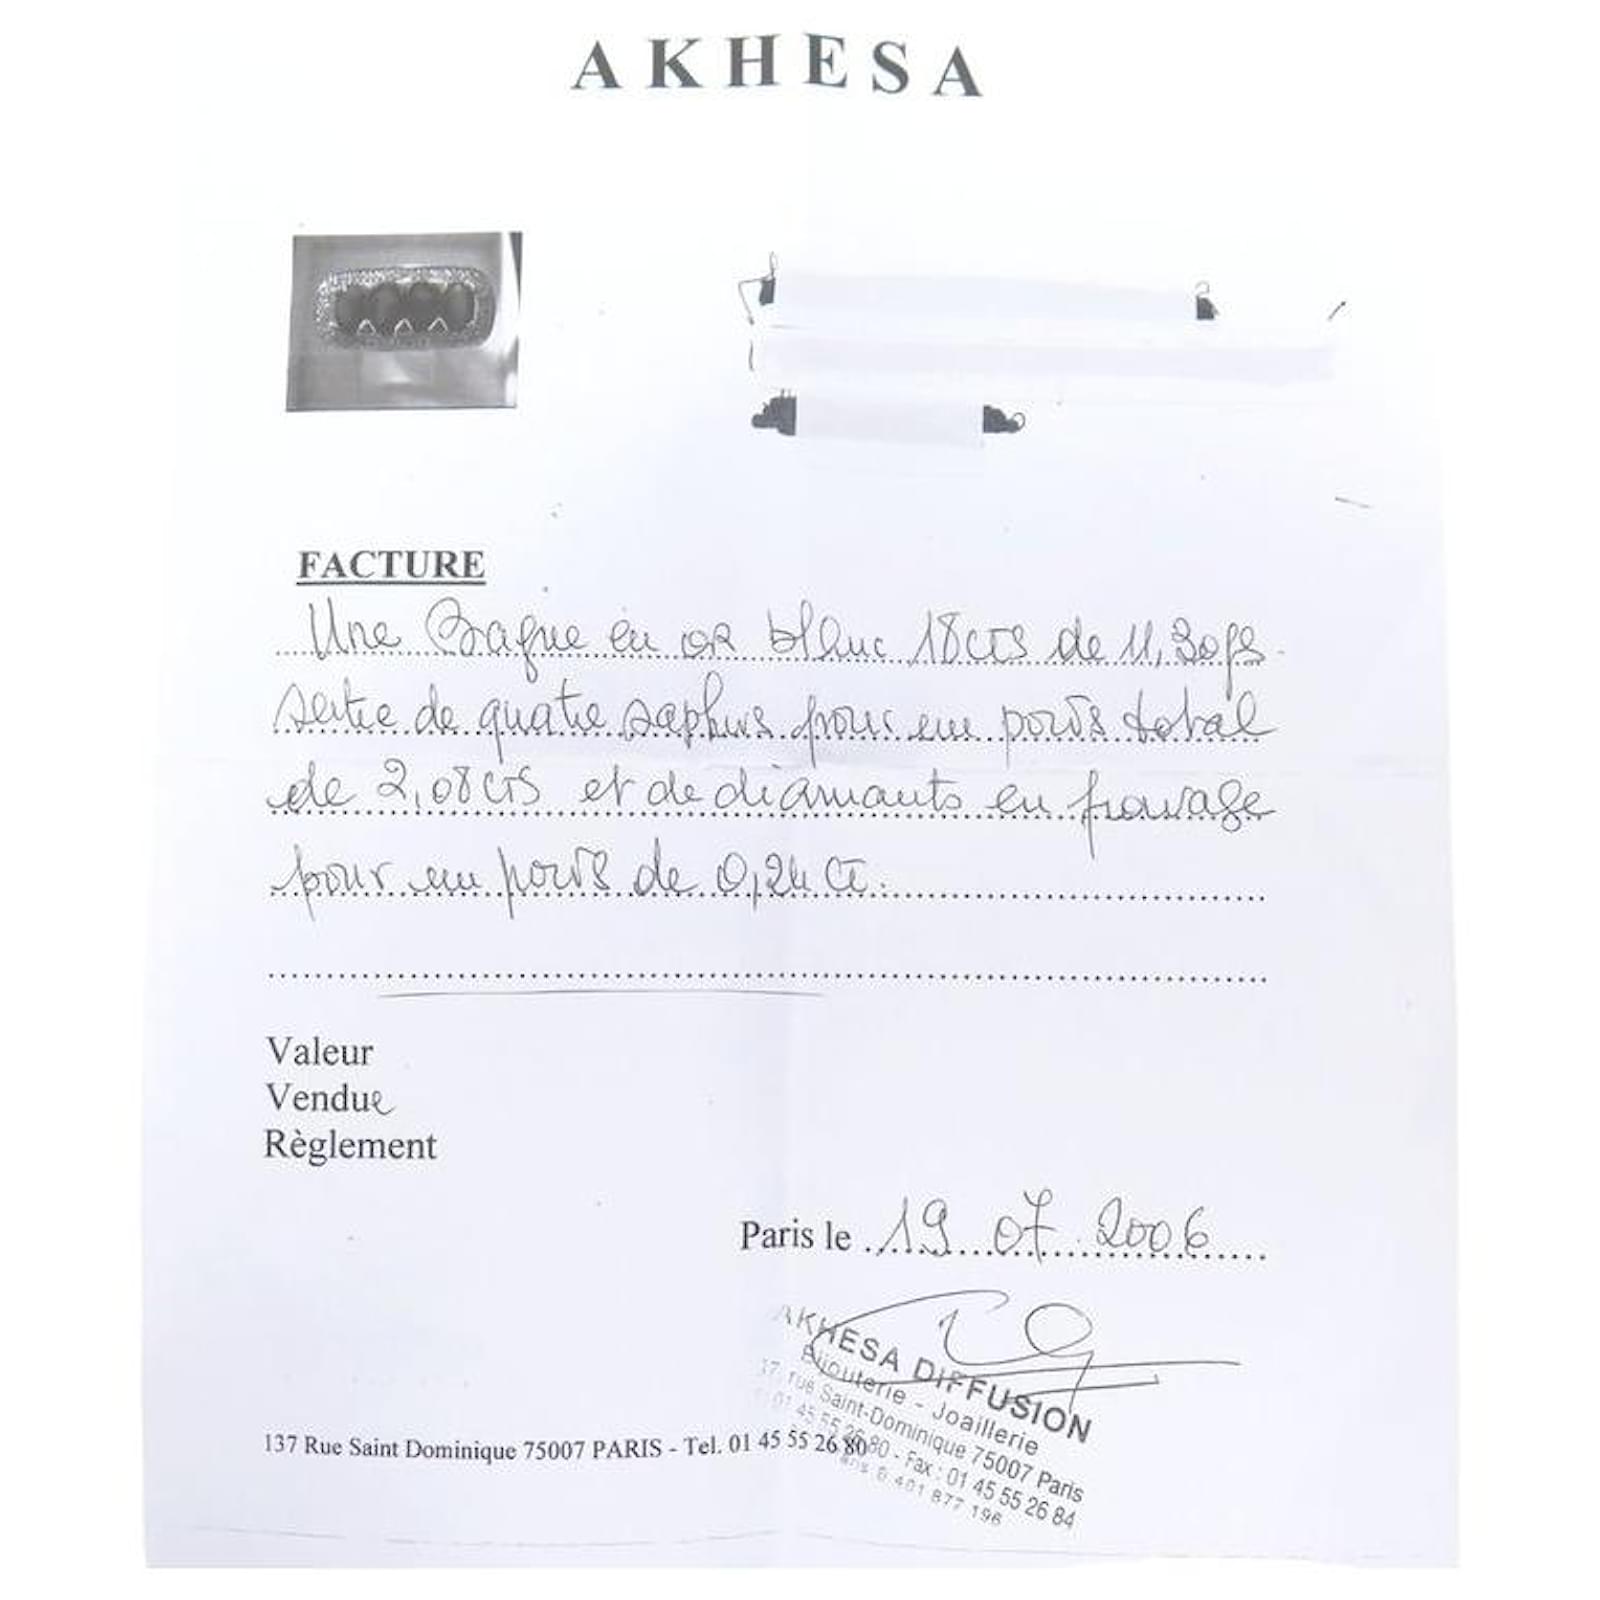 AKHESA
FACTURE
Une Bague en or blanc 18cts de 11,30grs
sertie de quatre saphirs pour un poids total
de 2,08cts et de diamants en pavage
pour un poids de 0,24 ct.
Valeur
Vendue
Règlement
Paris le 19 07 2006
AKHESA DIFFUSION
Bijouterie - Joaillerie
37, rue Saint-Dominique 75007 Paris
01 45 55 26 80 - Fax : 01 45 55 26 84
Paris B 401 877 196
137 Rue Saint Dominique 75007 PARIS - Tel. 01 45 55 26 80